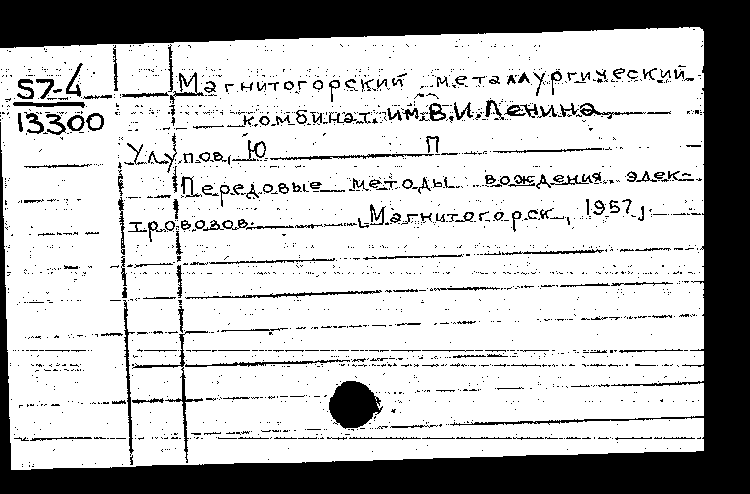 57-4
13300
Магнитогорский металлургический
комбинат им. В.И. Ленина.
Улупов, Ю П
Передовые методы вождения элек-
тровозов. , Магнитогорск, 1957,